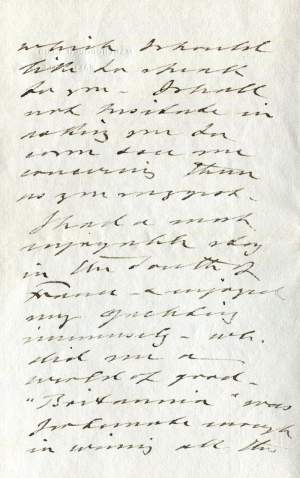 which I should
like to speak
to you - I shall
not hesitate in
asking you to
come & see me
concerning them
as you suggest.
I had a most
enjoyable stay
in the South of
France - & enjoyed
my yachting
immensely - wh.
did me a
world of good -
"Britannia" was
fortunate enough
in winning all the